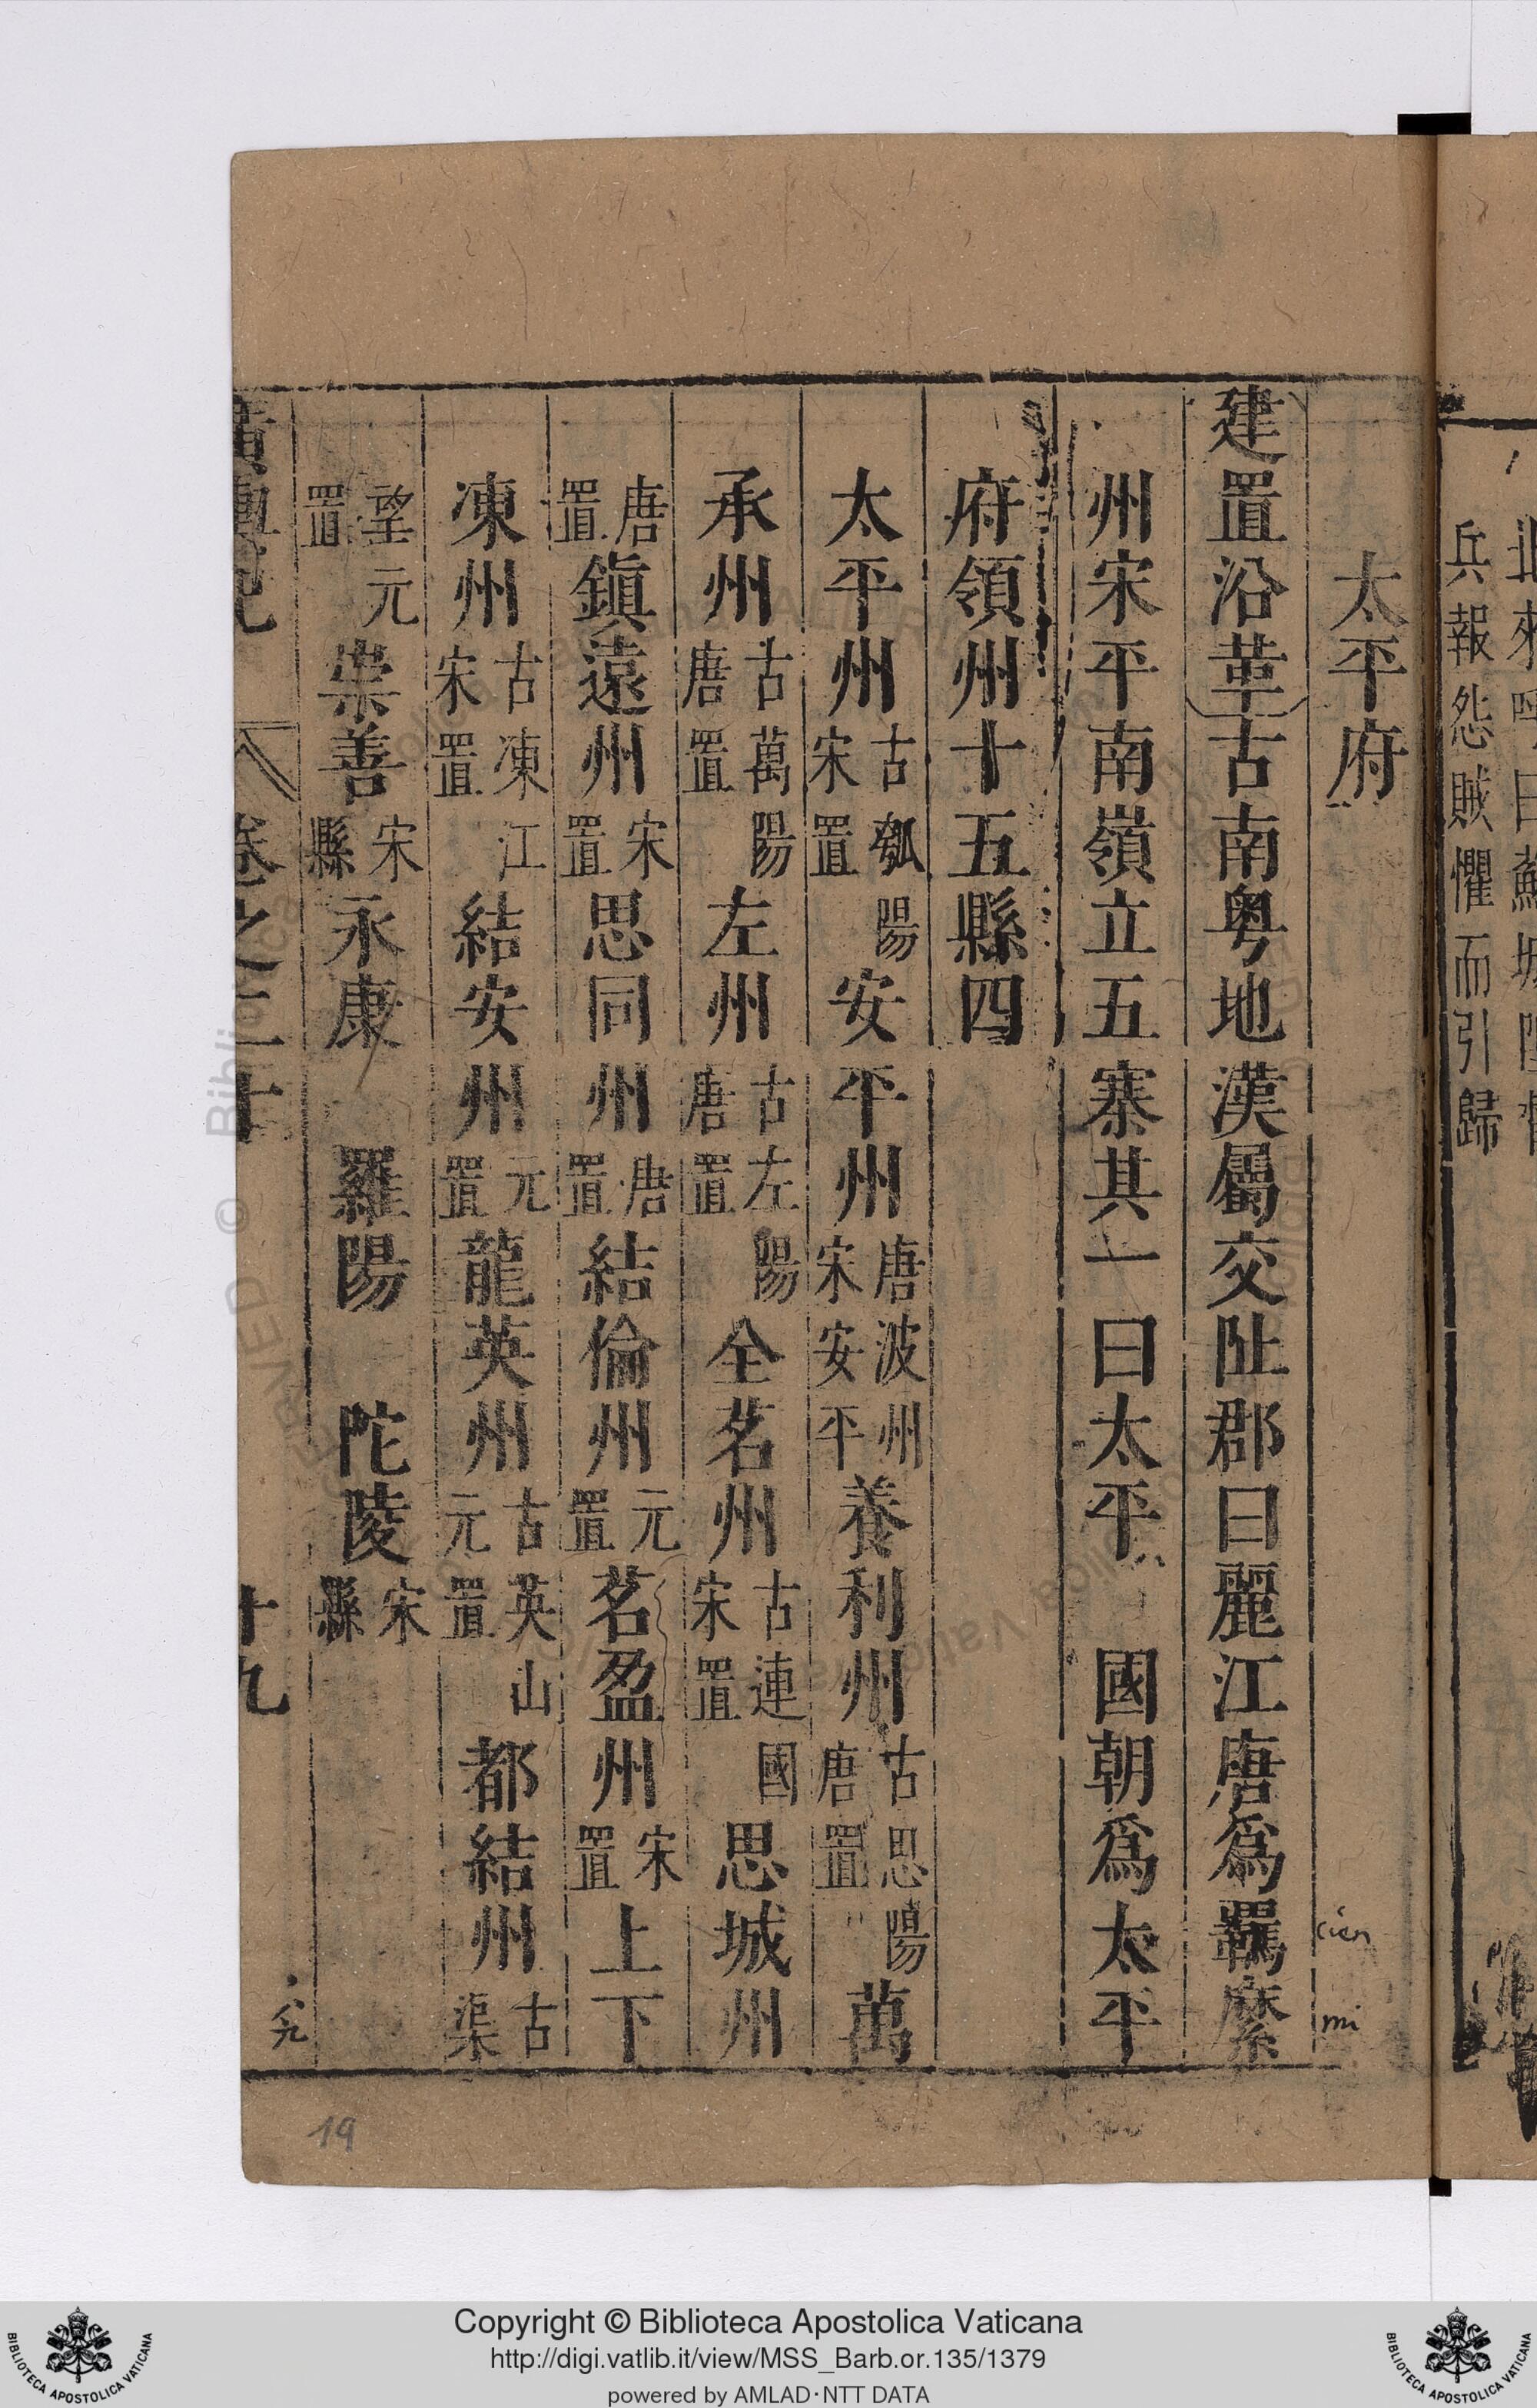 北來呼曰蘇城隍督
兵報怨賊懼而引歸
太平府
建置沿革古南粤地漢屬交阯郡曰麗江唐爲羈縻
cien
mi
州宋平南嶺立五寨其一曰太平 國朝爲太平
府領州十五縣四
太平州古瓠陽宋置安平州唐波州宋安平養利州古思陽唐置萬
承州古萬陽唐置左州古左陽唐置全茗州古連國宋置思城州
唐置鎭遠州宋置思同州唐置結倫州元置茗盈州宋置上下
凍州古凍江宋置結安州元置龍英州古英山元置都結州古渠
望元置崇善宋縣永康 羅陽 陀陵宋縣
廣輿記 卷之二十 十九
九
19
Copyright © Biblioteca Apostolica Vaticana
http://digi.vatlib.it/view/MSS_Barb.or.135/1379
powered by AMLAD·NTT DATA
BIBLIOTECA APOSTOLICA VATICANA
BIBLIOTECA APOSTOLICA VATICANA